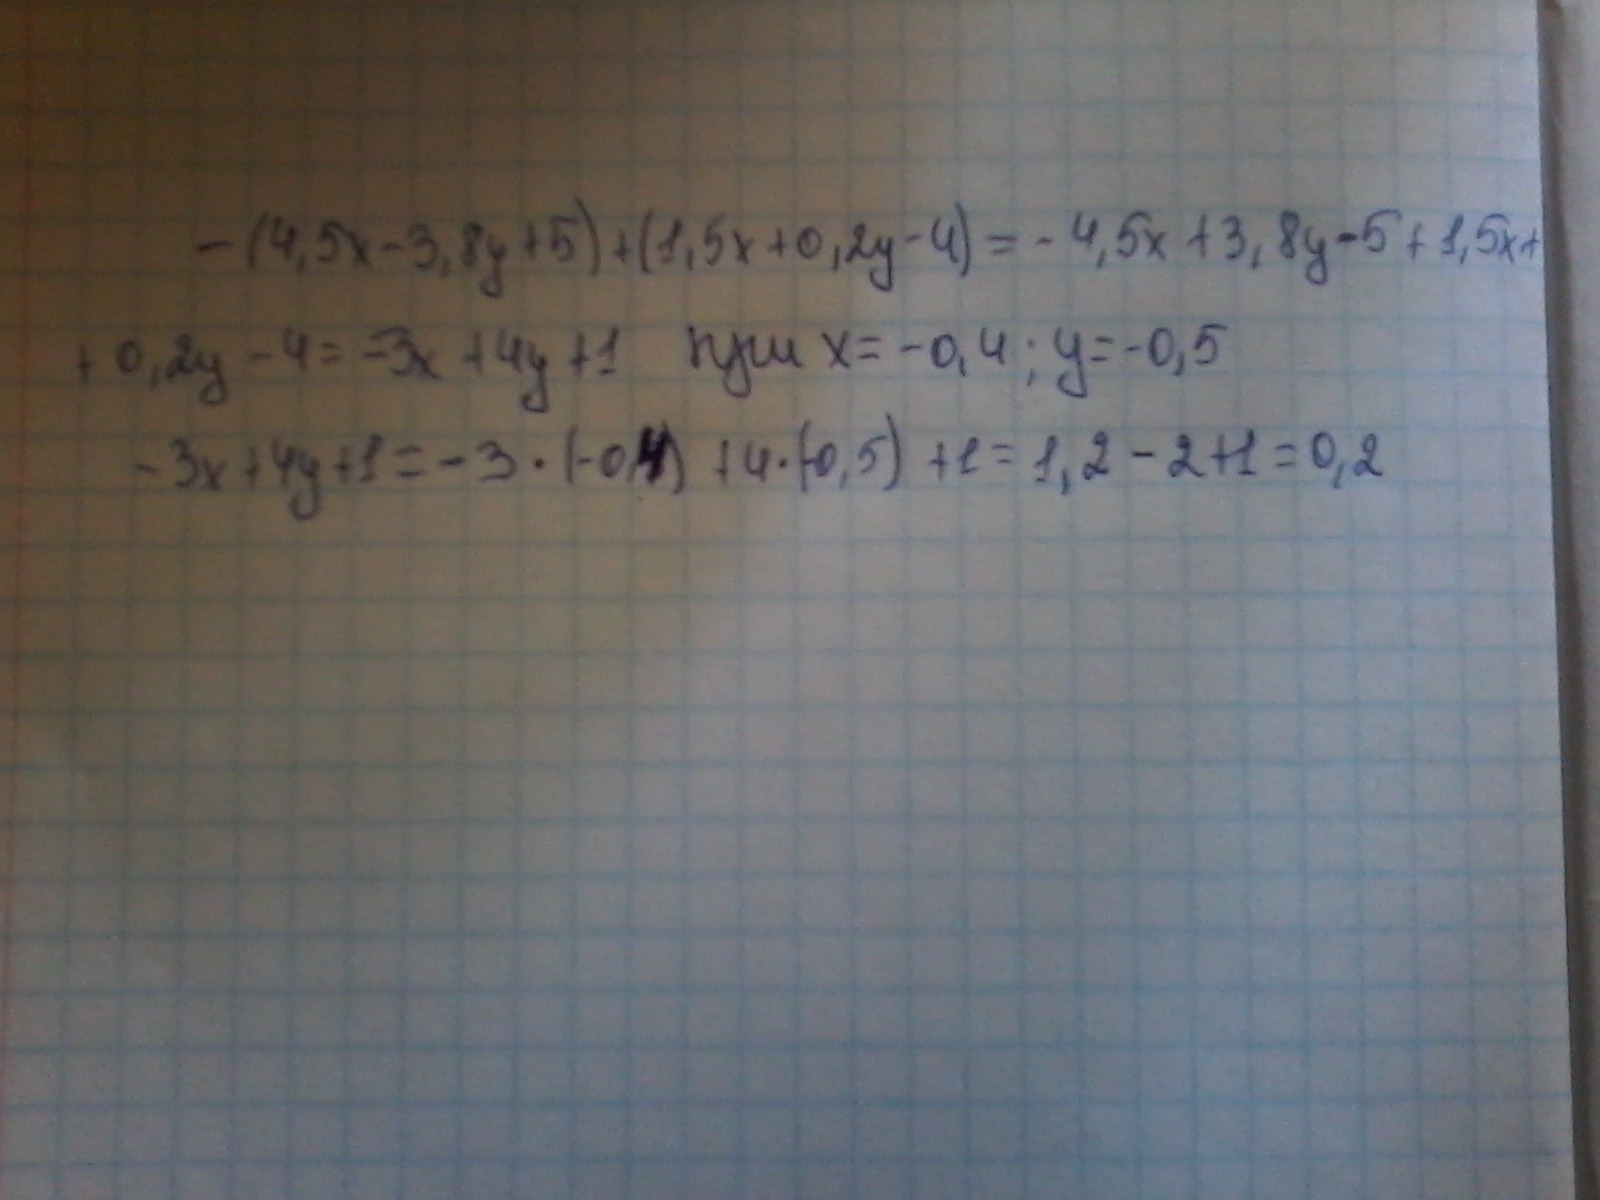 -(4,5x-3,8y+5)+(1,5x+0,2y-4)=-4,5x+3,8y-5+1,5x+
+0,2y-4=-3x+4y+1 при x=-0,4; y=-0,5
-3x+4y+1=-3·(-0,4)+4·(-0,5)+1=1,2-2+1=0,2